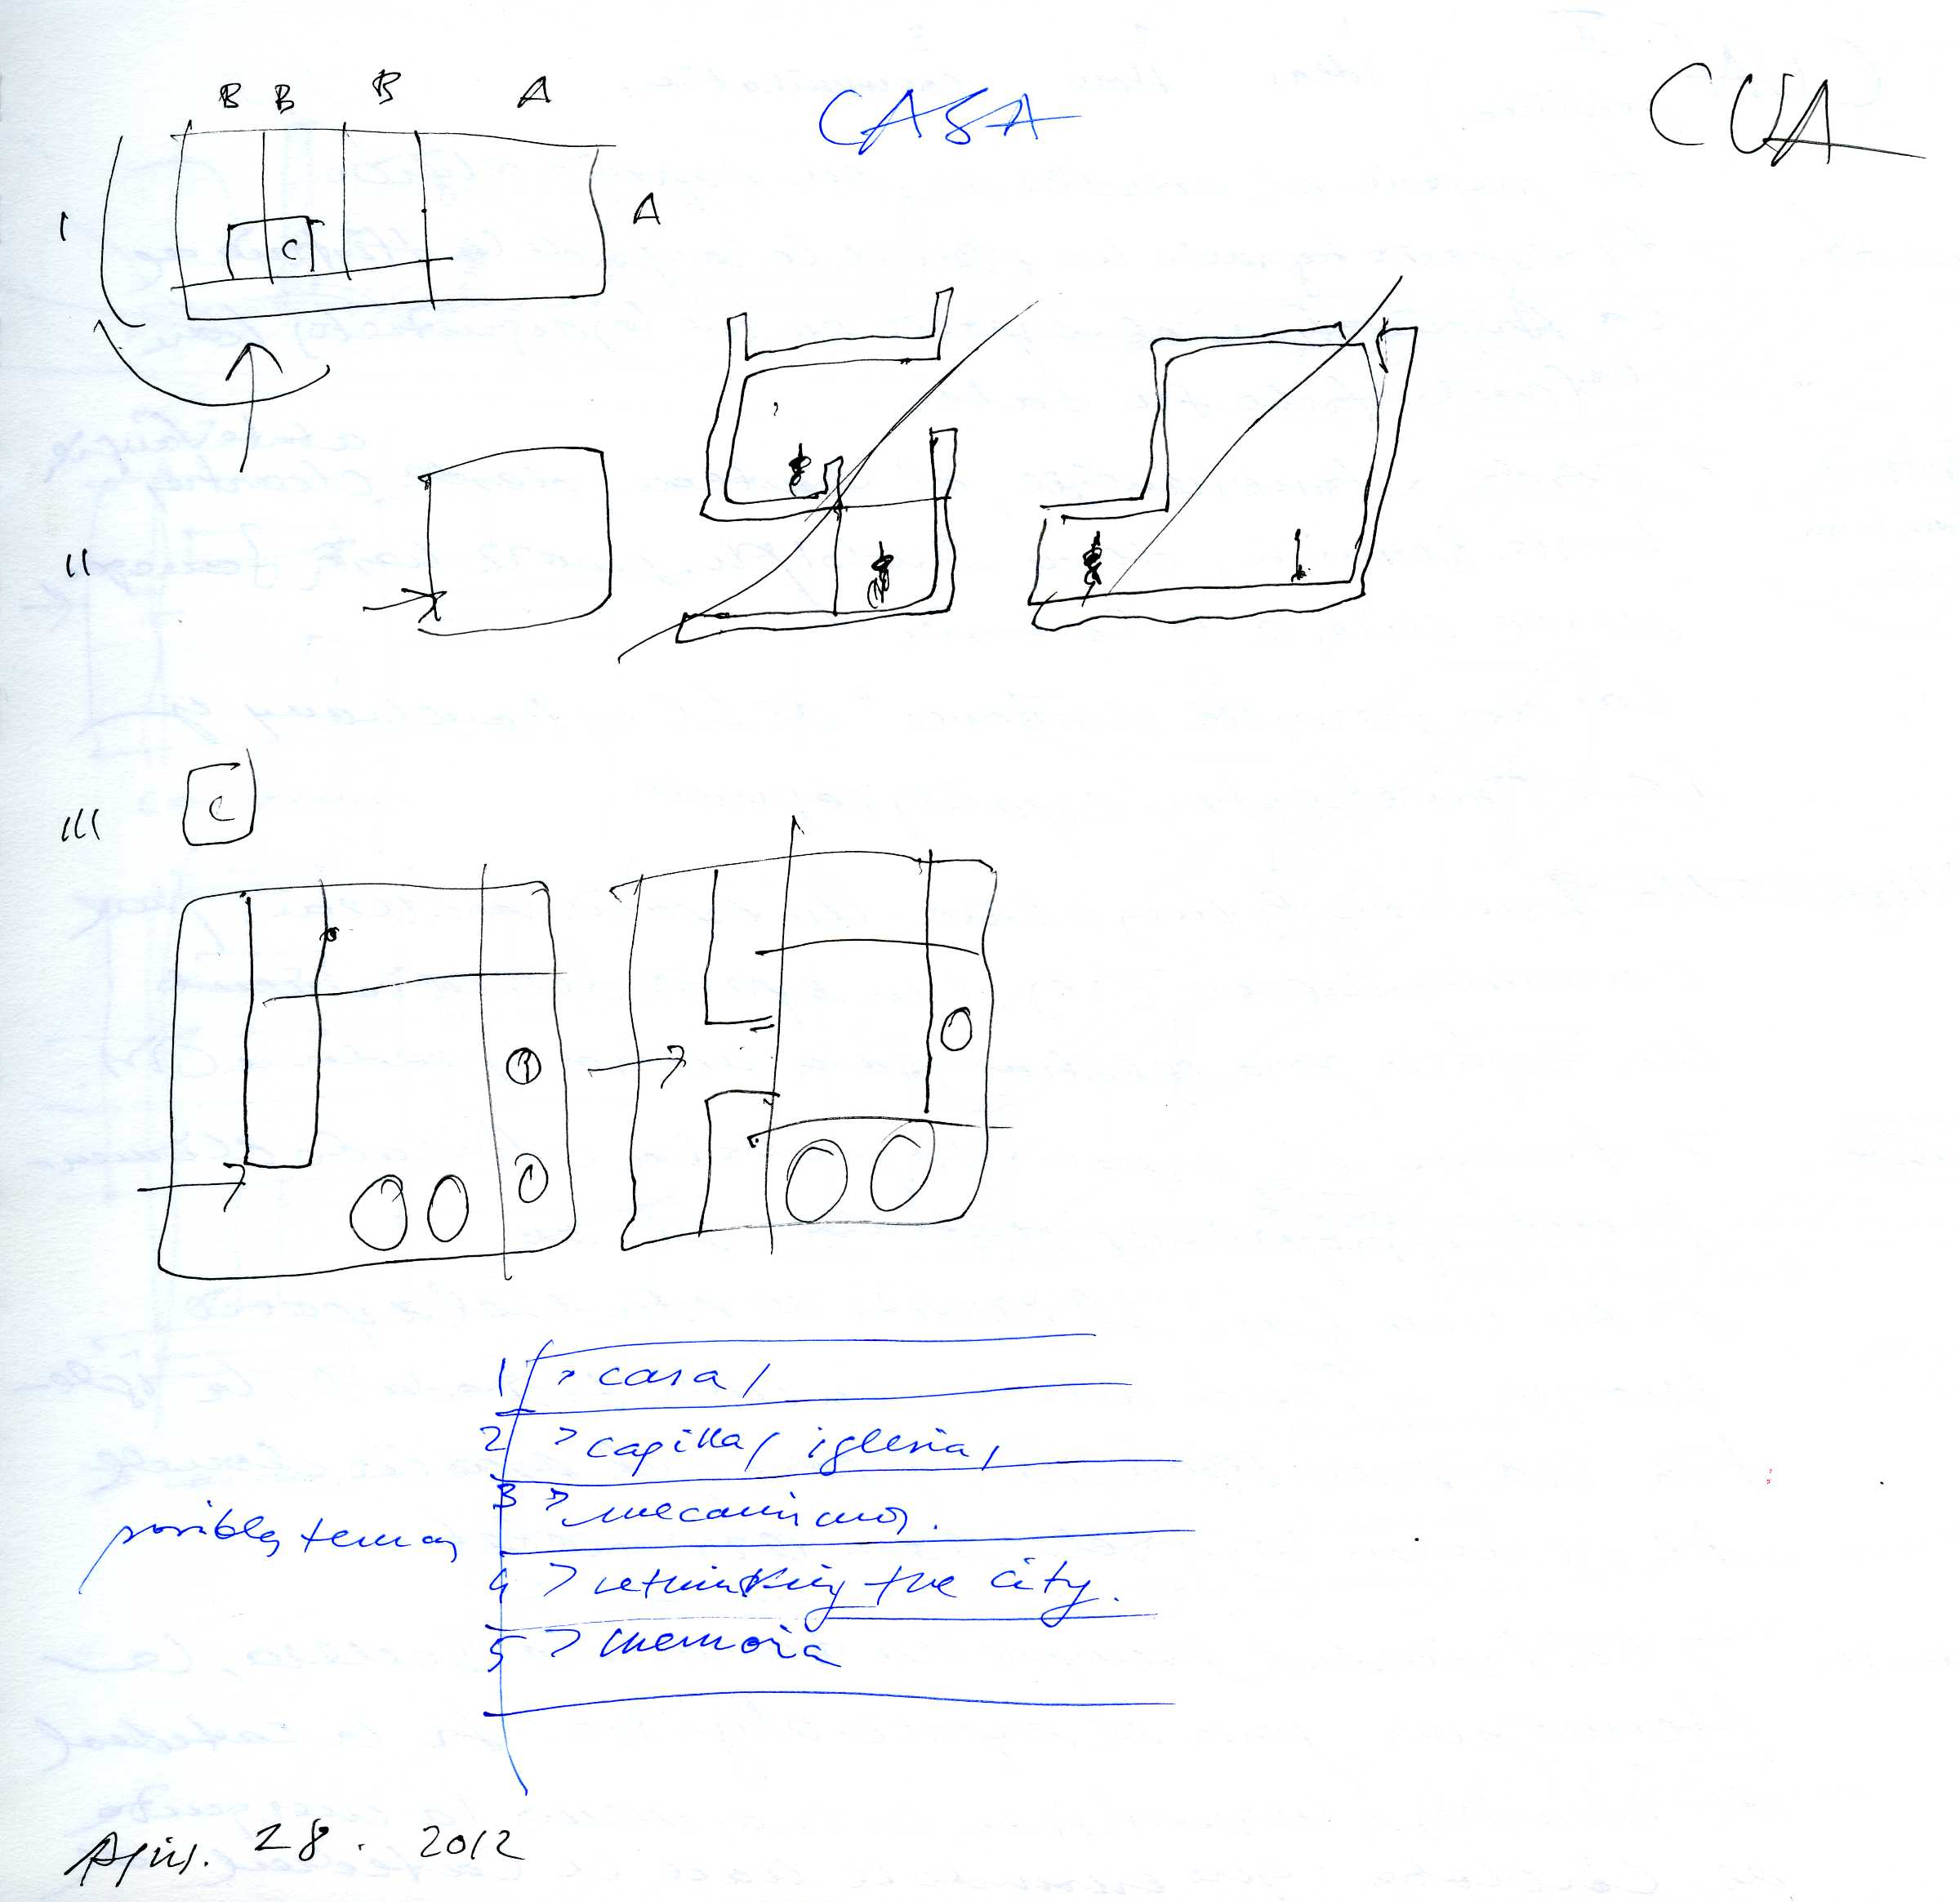 B B B A
CASA
CUA
I
A
C
II
III
C
1 > casa,
2 > capilla, iglesia,
3 > mecanismos.
posibles temas
4 > rethinking the city.
5 > memoria
28. 2012